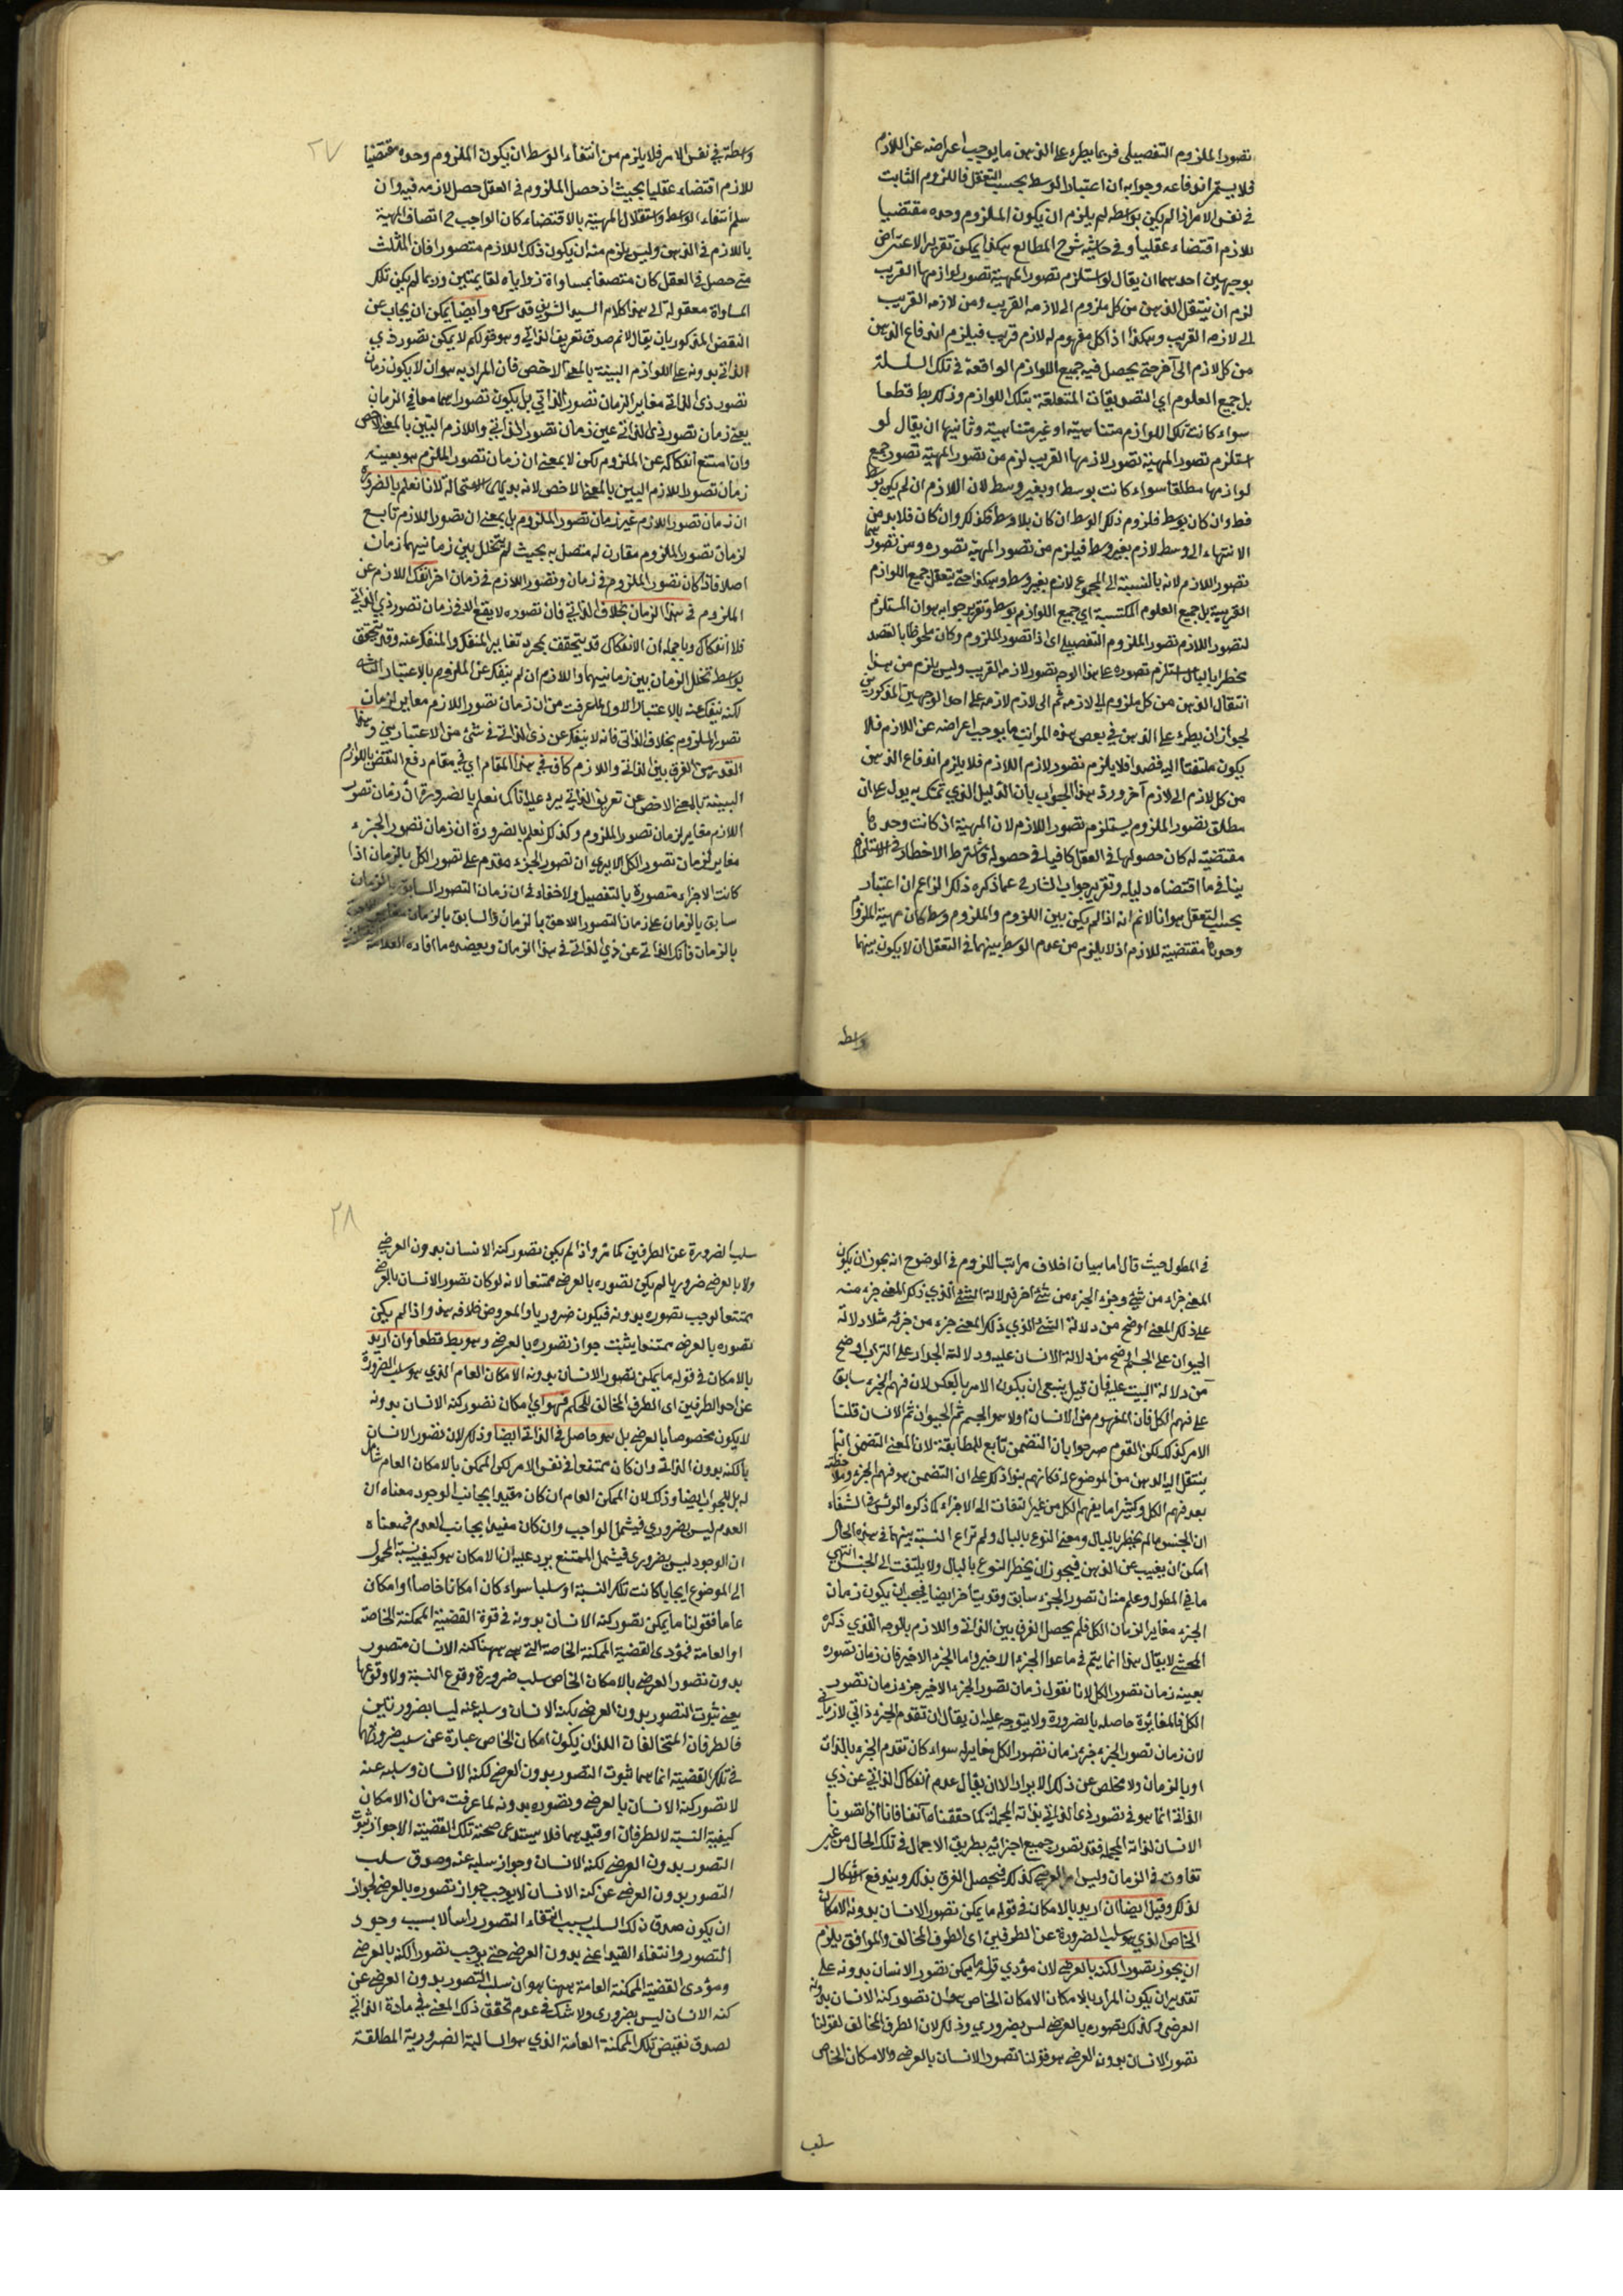 تصور الملزوم التفصيلى فربما يطرء على الذهن ما يوجب اعراضه عن اللازم
فلا يستمر اندفاعه وجوابه ان اعتبار الوسط بحسب التعقل فاللزوم الثابت
فى نفس الامر اذا لم يكن بواسطه لم يلزم ان يكون الملزوم وحده مقتضيا
للازم اقتضاء عقليا وفى حاشية شرح المطالع هكذا يمكن تقرير الاعتراض
بوجهين احدهما ان يقال لو استلزم تصور المهية تصور لوازمها القريب
لزم ان ينتقل الذهن من كل ملزوم الى لازمه القريب ومن لازمه القريب
الى لازمه القريب وهكذا اذ كل مفهوم له لازم قريب فيلزم اندفاع الذهن
من كل لازم الى آخر حتى يحصل فيه جميع اللوازم الواقعة فى تلك السلسلة
بل جميع العلوم اي التصديقات المتعلقة بتلك اللوازم وذلك بط قطعا
سواء كانت تلك اللوازم متناهية او غير متناهية وثانيها ان يقال لو
استلزم تصور المهية تصور لازمها القريب لزم من تصور المهية تصور جميع
لوازمها مطلقا سواء كانت بوسط او بغير وسط لان اللازم ان لم يكن بوسط
فظ وان كان بوسط فلزوم ذلك الوسط ان كان بلا وسط فكذلك وان كان فلا بد من
الانتهاء الى وسط لازم بغير وسط فيلزم من تصور المهية تصوره ومن تصورهما
تصور اللازم لانه بالنسبة الى المجموع لازم بغير وسط وهكذا حتى يتعقل جميع اللوازم
القريبة بل جميع العلوم المكتسبة اي جميع اللوازم بوسط وتقرير جوابه هو ان المستلزم
لتصور اللازم تصور الملزوم التفصيلى اى اذا تصور الملزوم وكان ملحوظا بالقصد
مخطرا بالبال استلزم تصوره على هذا الوجه تصور لازمه القريب وليس يلزم من هذا
انتقال الذهن من كل ملزوم الى لازمه ثم الى لازم لازمه على احد الوجهين المذكورين
لجواز ان يطرء على الذهن فى بعض هذه المراتب ما يوجب اعراضه عن اللازم فلا
يكون ملتفتا اليه قصدا فلا يلزم تصور لازم اللازم فلا يلزم اندفاع الذهن
من كل لازم الى لازم آخر ورد هذا الجواب بان الدليل الذي تمسك به يدل على ان
مطلق تصور الملزوم يستلزم تصور اللازم لان المهية اذ كانت وحدها
مقتضية له كان حصولها فى العقل كافيا فى حصوله واشتراط الاخطار فى الاستلزام
ينافى ما اقتضاه دليله وتقرير جواب الشارح عما ذكره ذلك الزاعم ان اعتبار
بحسب التعقل هو انا لانم انه اذا لم يكن بين اللزوم والملزوم وسط كان مهية الملزوم
وحدها مقتضية للازم اذ لا يلزم من عدم الوسط بينهما فى التعقل ان لا يكون بينهما
واسطه
٢٧
واسطة فى نفس الامر فلا يلزم من انتفاء الوسط ان يكون الملزوم وحده مقتضيا
للازم اقتضاء عقليا بحيث اذ حصل الملزوم فى العقل حصل لازمه فيه وان
سلم انتفاء الوسط واستقلال المهية بالاقتضاء كان الواجب ح اتصاف المهية
باللازم فى الذهن وليس يلزم منه ان يكون ذلك اللازم متصورا فان المثلث
متى حصل فى العقل كان متصفا بمساواة زواياه لقايمتين وربما لم يكن تلك
المساواة معقولة الى هنا كلام السيد الشريف قدس سره وايضا يمكن ان يجاب عن
النقض المذكور بان يقال لانم صدق تعريف الذاتى وهو قولكم لا يمكن تصور ذي
الذاتى بدونه على اللوازم البينة بالمعنى الاخص فان المراد به هو ان لا يكون زمان
تصور ذى الذاتى مغاير الزمان تصور الذاتي بل يكون تصوراهما معا فى الزمان
يعنى زمان تصور ذى الذاتى عين زمان تصور الذاتى واللازم البين بالمعنى الاخص
وان امتنع انفكاكه عن الملزوم لكن لا بمعنى ان زمان تصور الملزم هو بعينه
زمان تصور اللازم البين بالمعنى الاخص لانه بديهى الاستحالة لانا نعلم بالضرورة
ان زمان تصور اللازم غير زمان تصور الملزوم بل بمعنى ان تصور اللازم تابع
لزمان تصور الملزوم مقارن له متصل به بحيث لم يتخلل بين زمانيهما زمان
اصلا فاذا كان تصور الملزوم فى زمان وتصور اللازم فى زمان اخر انفك اللازم عن
الملزوم فى هذا الزمان بخلاف الذاتي فان تصوره لا يقع الا فى زمان تصور ذي الذاتي
فلا انفكاك وبالجملة ان الانفكاك قد يتحقق بمجرد تغاير المنفك والمنفك عنه وقد يتحقق
بواسط تخلل الزمان بين زمانيهما واللازم ان لم ينفك عن الملزوم بالاعتبار الثانى
لكنه ينفك عنه بالاعتبار الاول لما عرفت من ان زمان تصور اللازم مغاير لزمان
تصور الملزوم بخلاف الذاتى فانه لا ينفك عن ذى الذاتى فى شئ من الاعتبارين وهذا
القدر من الفرق بين الذاتى واللازم كاف فى هذا المقام اي فى مقام دفع النقض باللوازم
البينة بالمعنى الاخص عن تعريف الذاتي يرد عليه انا كما نعلم بالضرورة ان زمان تصور
اللازم مغاير لزمان تصور الملزوم وكذلك نعلم بالضرورة ان زمان تصور الجزء
مغاير لزمان تصور الكل الا يرى ان تصور الجزء مقدم على تصور الكل بالزمان اذا
كانت الاجزاء متصورة بالتفصيل ولا خفاء فى ان زمان التصور السابق بالزمان
سابق بالزمان على زمان التصور اللاحق بالزمان والسابق بالزمان مغاير
بالزمان فانفك الذاتى عن ذي الذاتى فى هذا الزمان ويعضده ما افاده العلامة
فى المطول حيث قال اما بيان اختلاف مراتب اللزوم فى الوضوح انه يجوز ان يكون
المعنى جزاء من شئ وجزء الجزء من شئ اخر فدلالة الشئ الذي ذلك المعنى جزء منه
على ذلك المعنى اوضح من دلالة الشئ الذي ذلك المعنى جزء من جزئه مثلا دلالة
الحيوان على الجسم اوضح من دلالة الانسان عليه ودلالة الجدار على التراب اوضح
من دلالة البيت عليه فان قيل ينبغى ان يكون الامر بالعكس لان فهم الجزء سابق
على فهم الكل فان المفهوم من الانسان اولا هو الجسم ثم الحيوان ثم الانسان قلنا
الامر كذلك لكن القوم صرحوا بان التضمن تابع للمطابقة لان المعنى التضمنى انما
ينتقل اليه الذهن من الموضوع له فكانهم بنوا ذلك على ان التضمن هو فهم الجزء وملاحظته
بعد فهم الكل وكثيرا ما يفهم الكل من غير التفات الى الاجزاء كما ذكره الرئيس فى الشفاء
ان الجنس ما لم يخطر بالبال ومعنى النوع بالبال ولم تراع النسبة بينهما فى هذه الحال
امكن ان يغيب عن الذهن فيجوز ان يخطر النوع بالبال ولا يلتفت الى الجنس انتهى
ما فى المطول وعلم منه ان تصور الجزء سابق وقد يتاخر ايضا فيجب ان يكون زمان
الجزء مغاير الزمان الكل فلم يحصل الفرق بين الذاتى واللازم بالوجه الذي ذكره
المحشى لا يقال هذا انما يتم فى ما عدا الجزء الاخير واما الجزء الاخير فان زمان تصوره
بعينه زمان تصور الكل لانا نقول زمان تصور الجزء الاخير جزء زمان تصور
الكل فالمغايرة حاصله بالضرورة ولا يتوجه عليه ان يقال ان تقدم الجزء ذاتي لا زمانى
لان زمان تصور الجزء جزء زمان تصور الكل مغاير له سواء كان تقدم الجزء بالذات
او بالزمان ولا مخلص عن ذلك الايراد الا ان يقال عدم انفكاك الذاتي عن ذي
الذاتى انما هو فى تصور ذى الذاتي بذاته المجملة كما حققناه آنفا فانا اذا تصورنا
الانسان لذاته المجملة فقد تصورنا جميع اجزائه بطريق الاجمال فى تلك الحال من غير
تفاوت فى الزمان وليس امر العرضى كذلك فيحصل الفرق بذلك ويندفع اشكال
لذلك وقيل ايضا ان اريد بالامكان فى قوله ما يمكن تصور الانسان بدونه الامكان
الخاص الذي هو سلب الضرورة عن الطرفين اى الطرف المخالف والموافق يلزم
ان يجوز تصور الكنه بالعرضى لان مؤدي قوله ما يمكن تصور الانسان بدونه على
تقدير ان يكون المراد بالامكان الامكان الخاص هو ان تصور كنه الانسان بدونه
العرضى وكذلك تصوره بالعرضى ليس بضروري وذلك لان الطرف المخالف لقولنا
تصور الانسان بدون العرضى هو قولنا تصور الانسان بالعرضى والامكان الخاص
سلب
٢٨
سلب الضرورة عن الطرفين كما مر واذا لم يكن تصور كنه الانسان بدون العرضى
ولا بالعرضى ضروريا لم يكن تصوره بالعرضى ممتنعا لانه لو كان تصور الانسان بالعرضى
ممتنعا لوجب تصوره بدونه فيكون ضروريا والمعروض خلافه هذا واذا لم يكن
تصوره بالعرضى ممتنعا يثبت جواز تصوره بالعرضى وهو بط قطعا وان اريد
بالامكان فى قوله ما يمكن تصور الانسان بدونه الامكان العام الذي هو سلب الضرورة
عن احد الطرفين اى الطرف المخالف للحكم فهو اي امكان تصور كنه الانسان بدونه
لا يكون مخصوصا بالعرضى بل هو حاصل فى الذاتى ايضا وذلك لان تصور الانسان
بالكنه بدون الذاتى وان كان ممتنعا فى نفس الامر لكن الممكن بالامكان العام شامل
له بل للجواب ايضا وذلك لان الممكن العام ان كان مقيدا بجانب الوجود معناه ان
العدم ليس بضروري فيشمل الواجب وان كان مقيدا بجانب العدم فمعناه
ان الوجود ليس بضرورى فيشمل الممتنع يرد عليه ان الامكان هو كيفية نسبة المحمول
الى الموضوع ايجابا كانت تلك النسبة او سلبا سواء كان امكانا خاصا او امكان
عاما فقولنا ما يمكن تصور كنه الانسان بدونه فى قوة القضية الممكنة الخاصة
او العامة فمؤدى القضية الممكنة الخاصة التى هى ههنا كنه الانسان متصور
بدون تصور العرضى بالامكان الخاص سلب ضرورة وقوع النسبة ولا وقوعها
يعنى ثبوت التصور بدون العرضى بكنه الانسان وسلبه عنه ليسا بضروريتين
فالطرفان المتخالفان اللذان يكون امكان الخاص عبارة عن سلب ضرورتهما
فى تلك القضية انما هما ثبوت التصور بدون العرضى لكنه الانسان وسلبه عنه
لا تصور كنه الانسان بالعرضى وتصوره بدونه لما عرفت من ان الامكان
كيفية النسبة لا لطرفان او قيدهما فلا يستدعى صحة تلك القضية الا جواز ثبوت
التصور بدون العرضى لكنه الانسان وجواز سلبه عنه وصدق سلب
التصور بدون العرضى عن كنه الانسان لا يوجب جواز تصوره بالعرضى لجواز
ان يكون صدق ذلك السلب بسبب انتفاء التصور راسا لا بسبب وجود
التصور وانتفاء القيد اعنى بدون العرضى حتى يوجب تصور الكنه بالعرضى
ومؤدى القضية الممكنة العامة ههنا هو ان سلب التصور بدون العرضى عن
كنه الانسان ليس بضرورى ولا شك فى عدم تحقق ذلك المعنى فى مادة الذاتي
لصدق نقيض تلك الممكنة العامة الذي هو السالبة الضرورية المطلقة